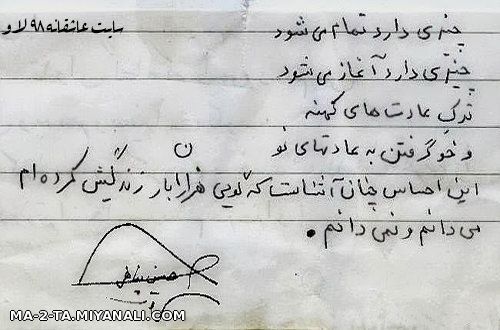 سایت عاشقانه ۹۸ لاو
چیزی دارد تمام می شود
چیزی دارد آغاز می شود
ترکِ عادت های کهنه
و خو گرفتن به عادتهای نو
این احساس چنان آشناست که گویی هزاران بار زندگیش کرده ام
می دانم و نمی دانم.
حسین پناهی
MA-2-TA.MIYANALI.COM